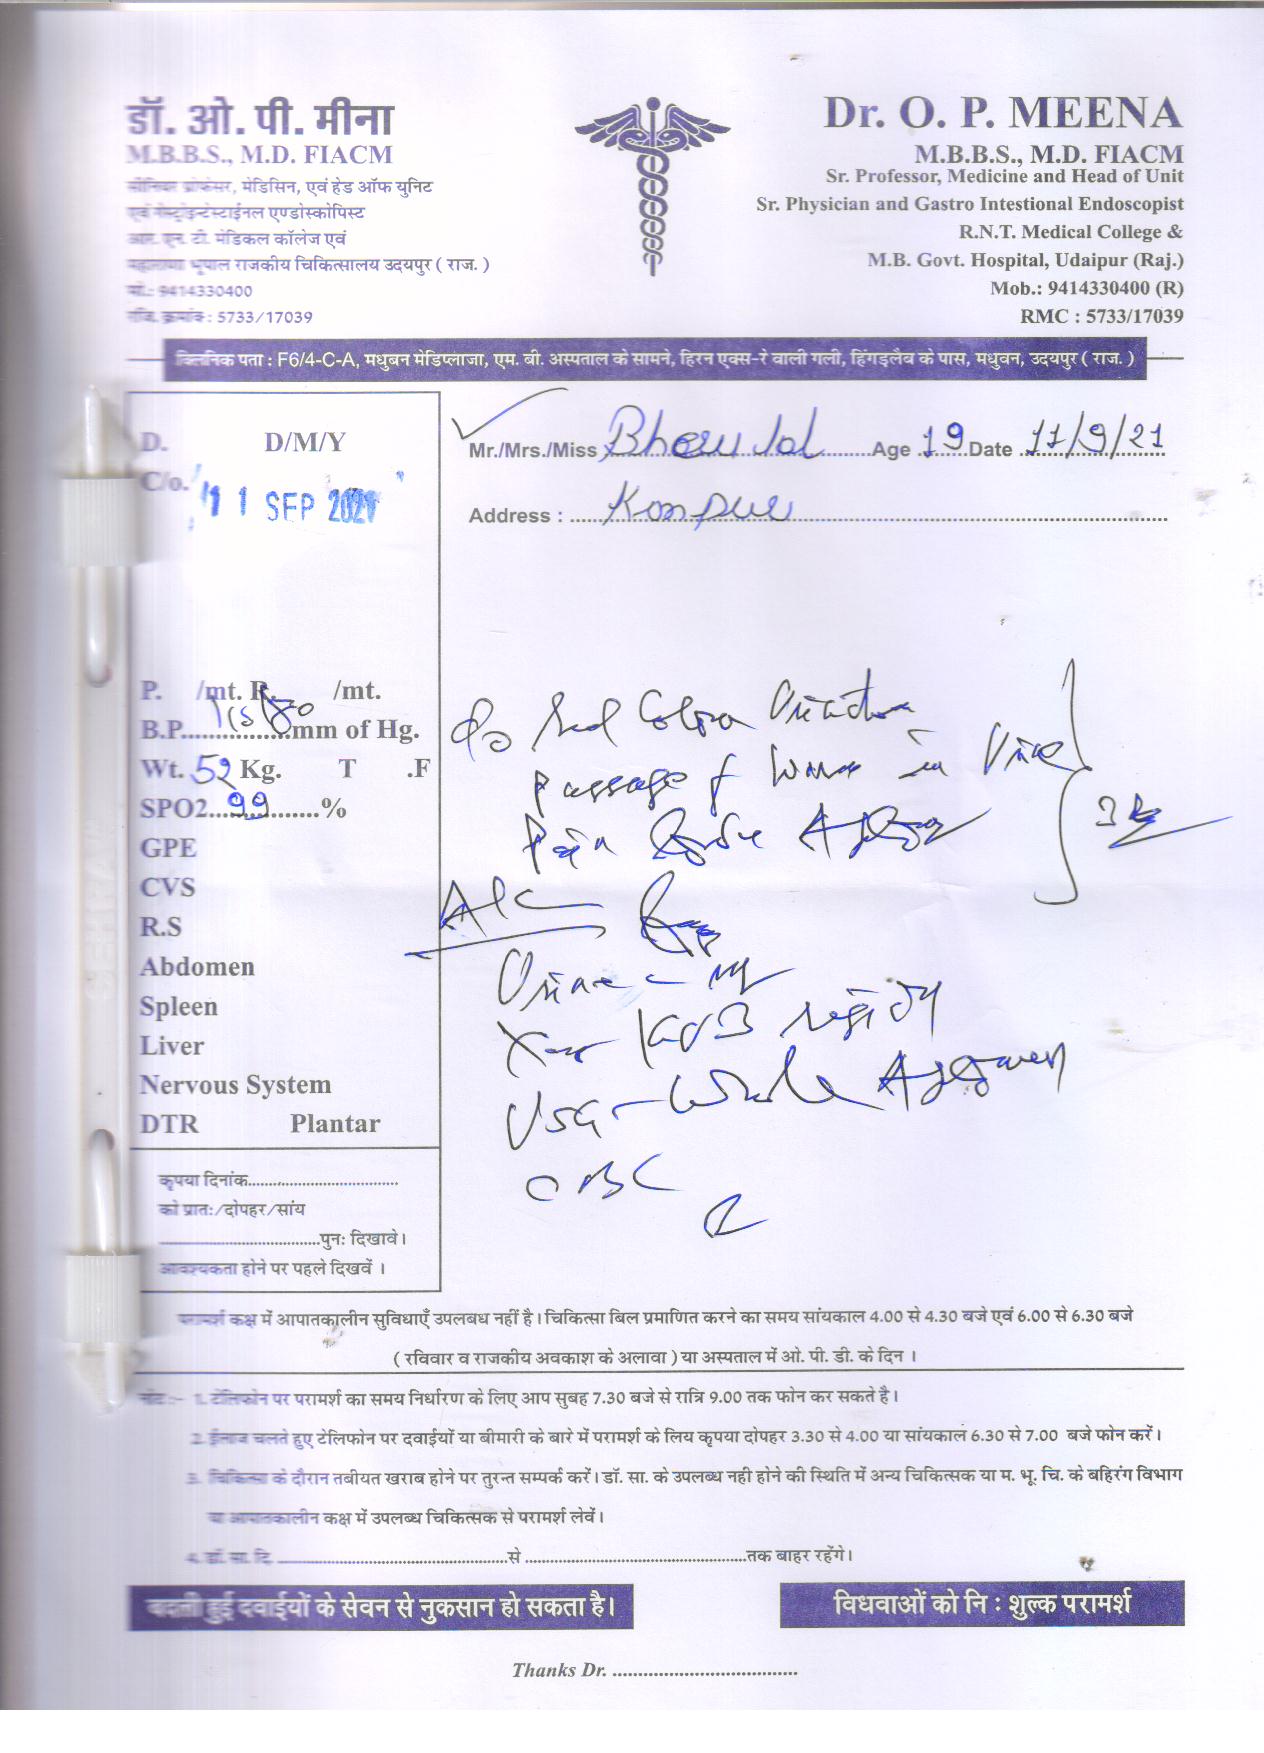 डॉ. ओ. पी. मीना
M.B.B.S., M.D. FIACM
सीनियर प्रोफेसर, मेडिसिन, एवं हेड ऑफ युनिट
एवं गेस्ट्रोइन्टेस्टाईनल एण्डोस्कोपिस्ट
आर. एन. टी. मेडिकल कॉलेज एवं
महाराणा भूपाल राजकीय चिकित्सालय उदयपुर ( राज. )
मो.: 9414330400
रजि. क्रमांक : 5733/17039
Dr. O. P. MEENA
M.B.B.S., M.D. FIACM
Sr. Professor, Medicine and Head of Unit
Sr. Physician and Gastro Intestional Endoscopist
R.N.T. Medical College &
M.B. Govt. Hospital, Udaipur (Raj.)
Mob.: 9414330400 (R)
RMC : 5733/17039
क्लिनिक पता : F6/4-C-A, मधुबन मेडिप्लाजा, एम. बी. अस्पताल के सामने, हिरन एक्स-रे वाली गली, हिंगड़लैब के पास, मधुवन, उदयपुर ( राज. )
D. D/M/Y
C/o.
11 SEP 2021
Mr./Mrs./Miss Age 19 Date 11/9/21
Address : Kanpur
P. /mt. R. /mt.
B.P. mm of Hg.
Wt. 52 Kg. T .F
SPO2 99 %
GPE
CVS
R.S
Abdomen
Spleen
Liver
Nervous System
DTR Plantar
Passage of in Urine
Pain
Urine
KUB
USG - Whole Abdomen
CBC
कृपया दिनांक
को प्रात:/दोपहर/सांय
पुन: दिखावे।
आवश्यकता होने पर पहले दिखवें ।
परामर्श कक्ष में आपातकालीन सुविधाएँ उपलबध नहीं है। चिकित्सा बिल प्रमाणित करने का समय सांयकाल 4.00 से 4.30 बजे एवं 6.00 से 6.30 बजे
( रविवार व राजकीय अवकाश के अलावा ) या अस्पताल में ओ. पी. डी. के दिन ।
नोट :- 1. टेलिफोन पर परामर्श का समय निर्धारण के लिए आप सुबह 7.30 बजे से रात्रि 9.00 तक फोन कर सकते है।
2. ईलाज चलते हुए टेलिफोन पर दवाईयों या बीमारी के बारे में परामर्श के लिय कृपया दोपहर 3.30 से 4.00 या सांयकाल 6.30 से 7.00 बजे फोन करें।
3. चिकित्सा के दौरान तबीयत खराब होने पर तुरन्त सम्पर्क करें। डॉ. सा. के उपलब्ध नही होने की स्थिति में अन्य चिकित्सक या म. भू. चि. के बहिरंग विभाग
या आपातकालीन कक्ष में उपलब्ध चिकित्सक से परामर्श लेवें।
4. डॉ. सा. दि. से तक बाहर रहेंगे।
बदली हुई दवाईयों के सेवन से नुकसान हो सकता है।
विधवाओं को नि : शुल्क परामर्श
Thanks Dr.